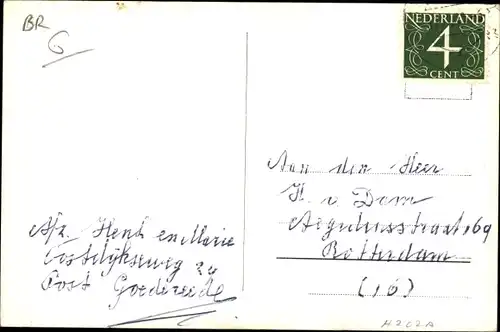 BR
6
NEDERLAND
4
CENT
Aan den Heer
H. v Dam
Rotterdam
(16)
Afz. Henk en Marie
Oostdijkseweg 20
Post Goedereede
H202A